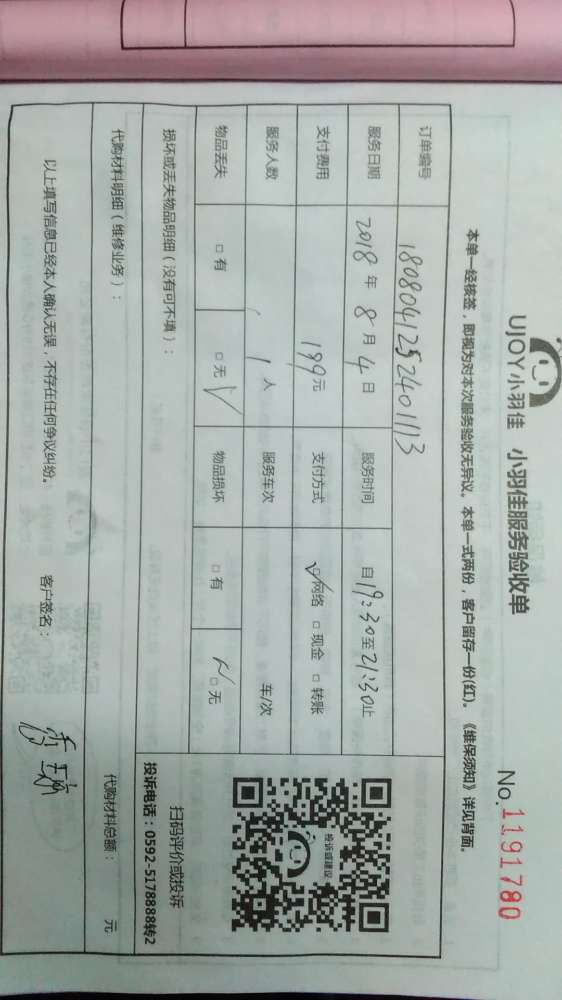 UJOY小羽佳 小羽佳服务验收单
No. 1191780
本单一经核签，即视为对本次服务验收无异议。本单一式两份，客户留存一份(红)。《维保须知》详见背面。
订单编号 1808041252401113
服务日期 2018年8月4日 服务时间 自19:30至21:30止
支付费用 199元 支付方式 ☑网络 □现金 □转账
服务人数 1人 服务车次 车/次
物品丢失 □有 □无√ 物品损坏 □有 ☑无
损坏或丢失物品明细（没有可不填）：
投诉或建议
扫码评价或投诉
投诉电话：0592-5178888转2
代购材料明细（维修业务）：
代购材料总额： 元
以上填写信息已经本人确认无误，不存在任何争议纠纷。 客户签名：